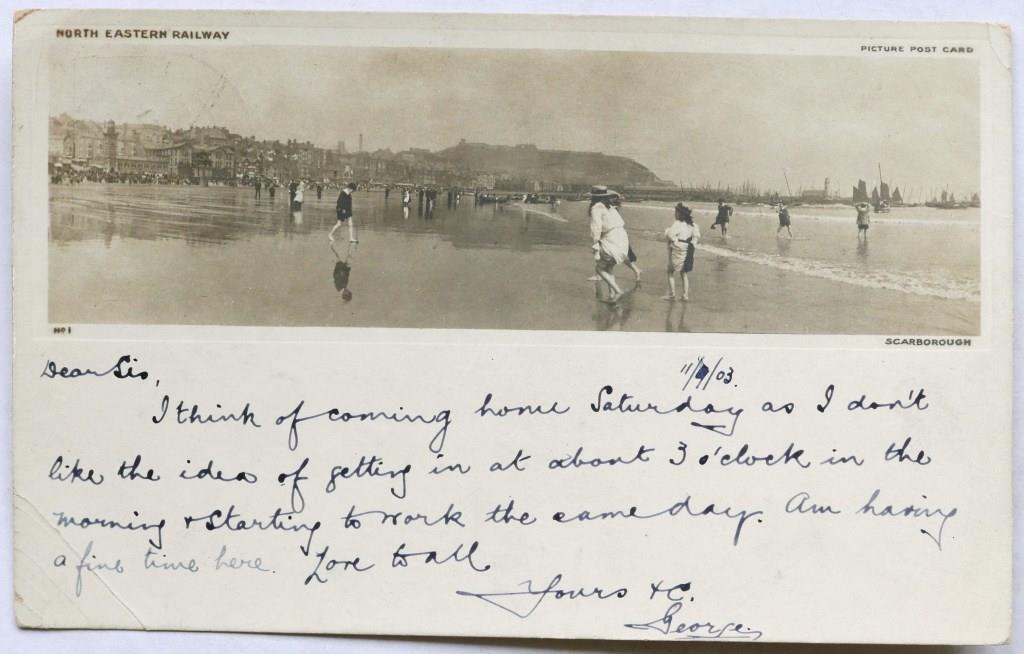 NORTH EASTERN RAILWAY
PICTURE POST CARD
No 1
SCARBOROUGH
11/9/03.
Dear Sis,
I think of coming home Saturday as I don't
like the idea of getting in at about 3 o'clock in the
morning & starting to work the same day. Am having
a fine time here. Love to all
Yours &c.
George.